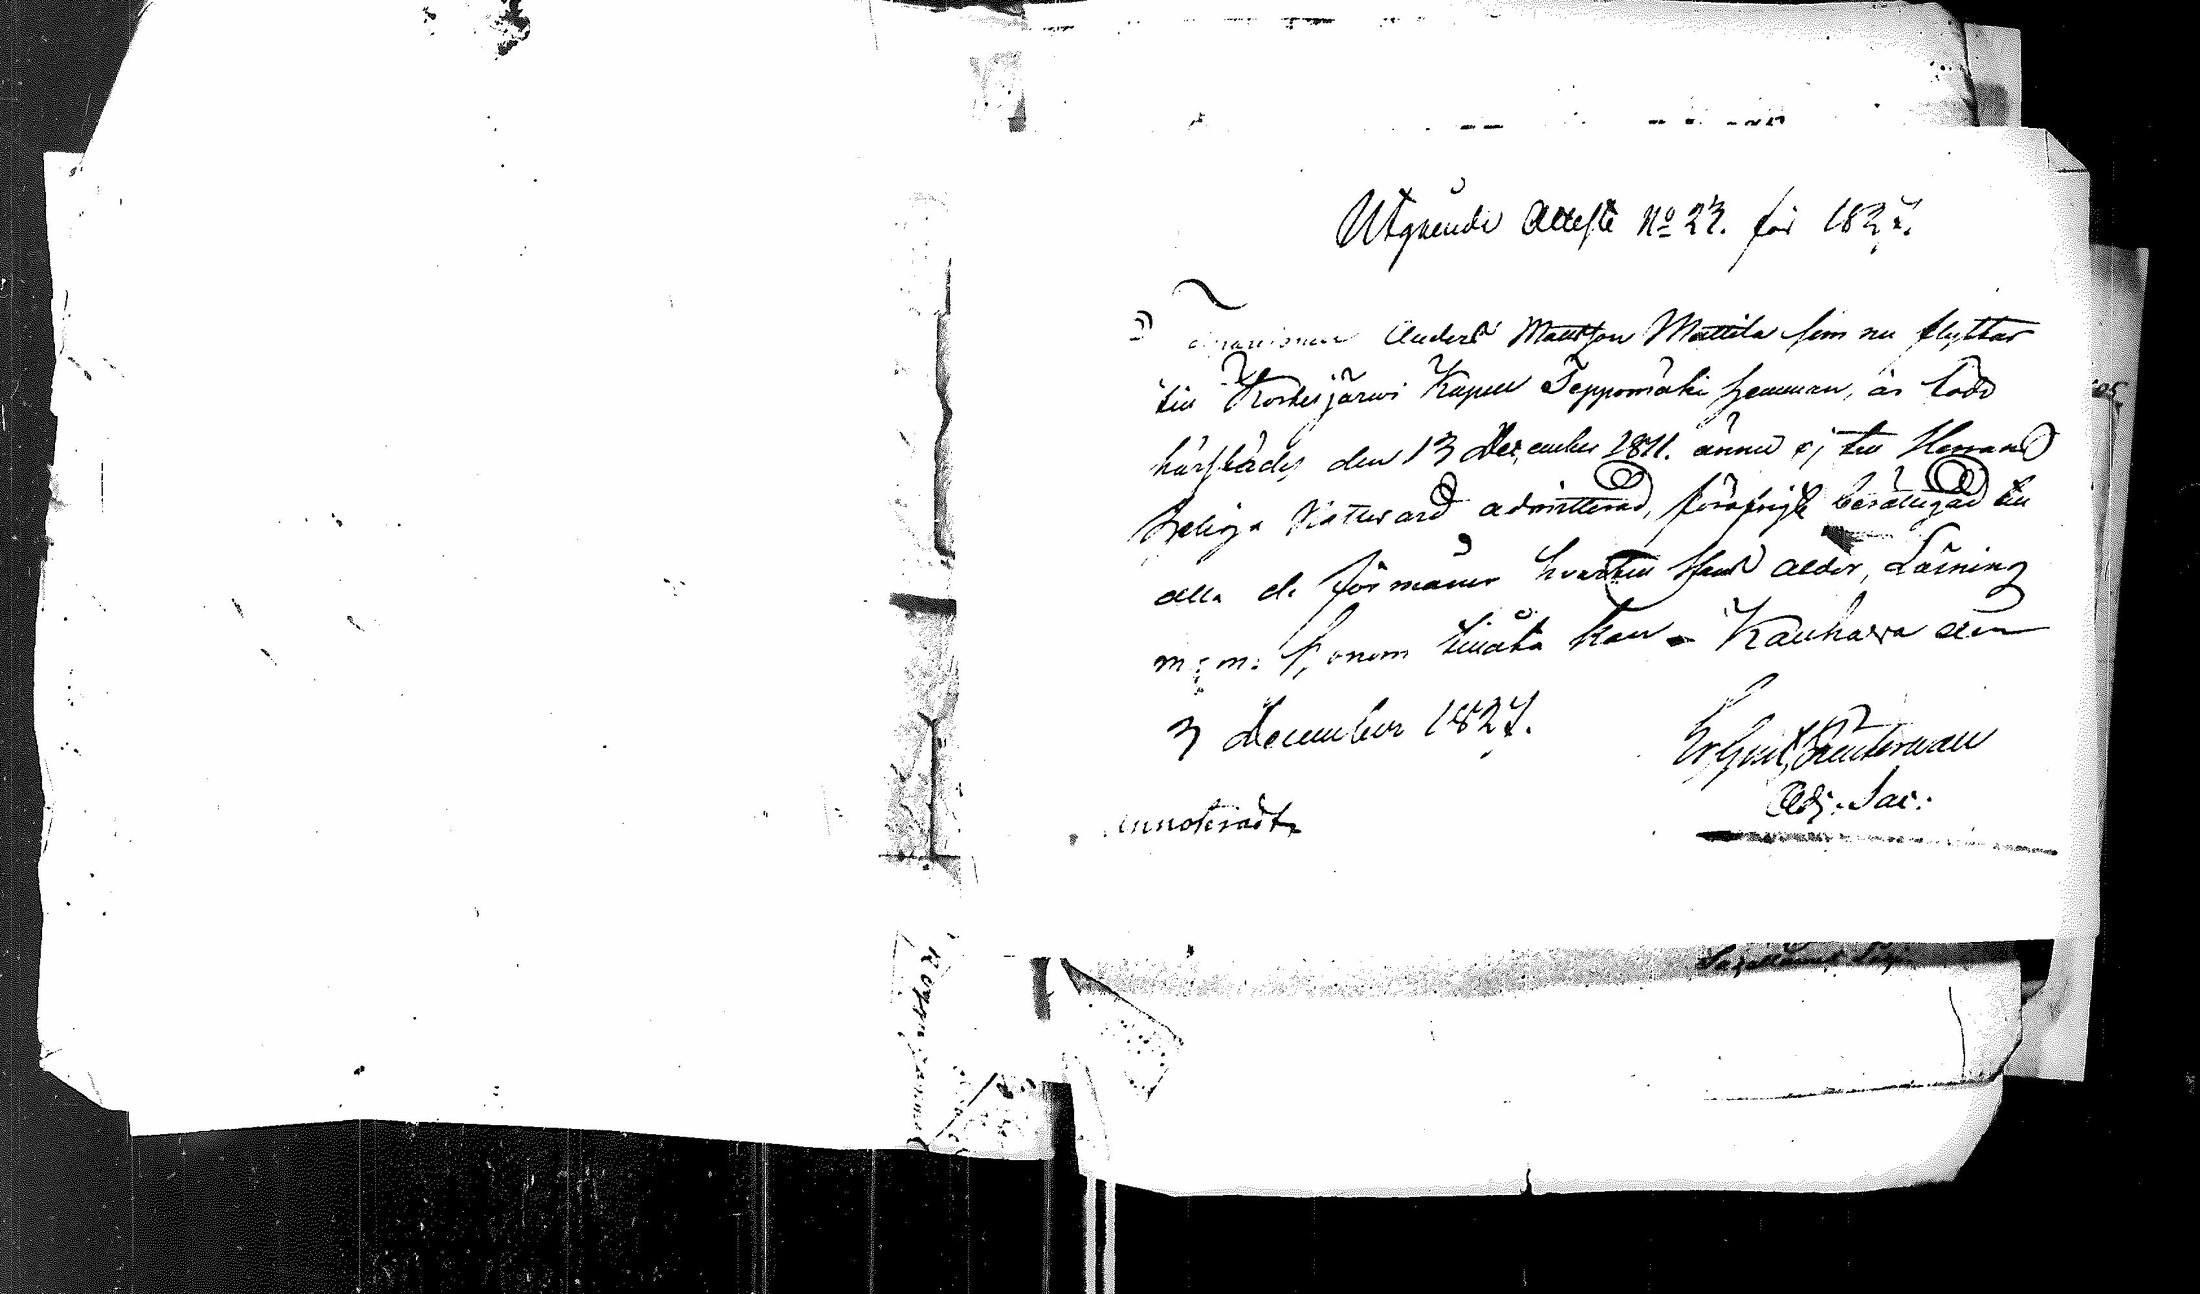 Utgående Atteste No 23. för 1827.
Anders Mattsson Mattila som nu flyttar
till Kortesjärwi Kapell Seppomäki hemman, är född
härstädes den 13 December 1811. ännu ej till Herrans
heliga Nattward admitterad, föröfrigt berättigad till
alla de förmåner hvartill Hans ålder, Läsning
m: m: honom tillåta kan. Kauhawa den
3 December 1827.
Adj. Sac:
Annoteradt